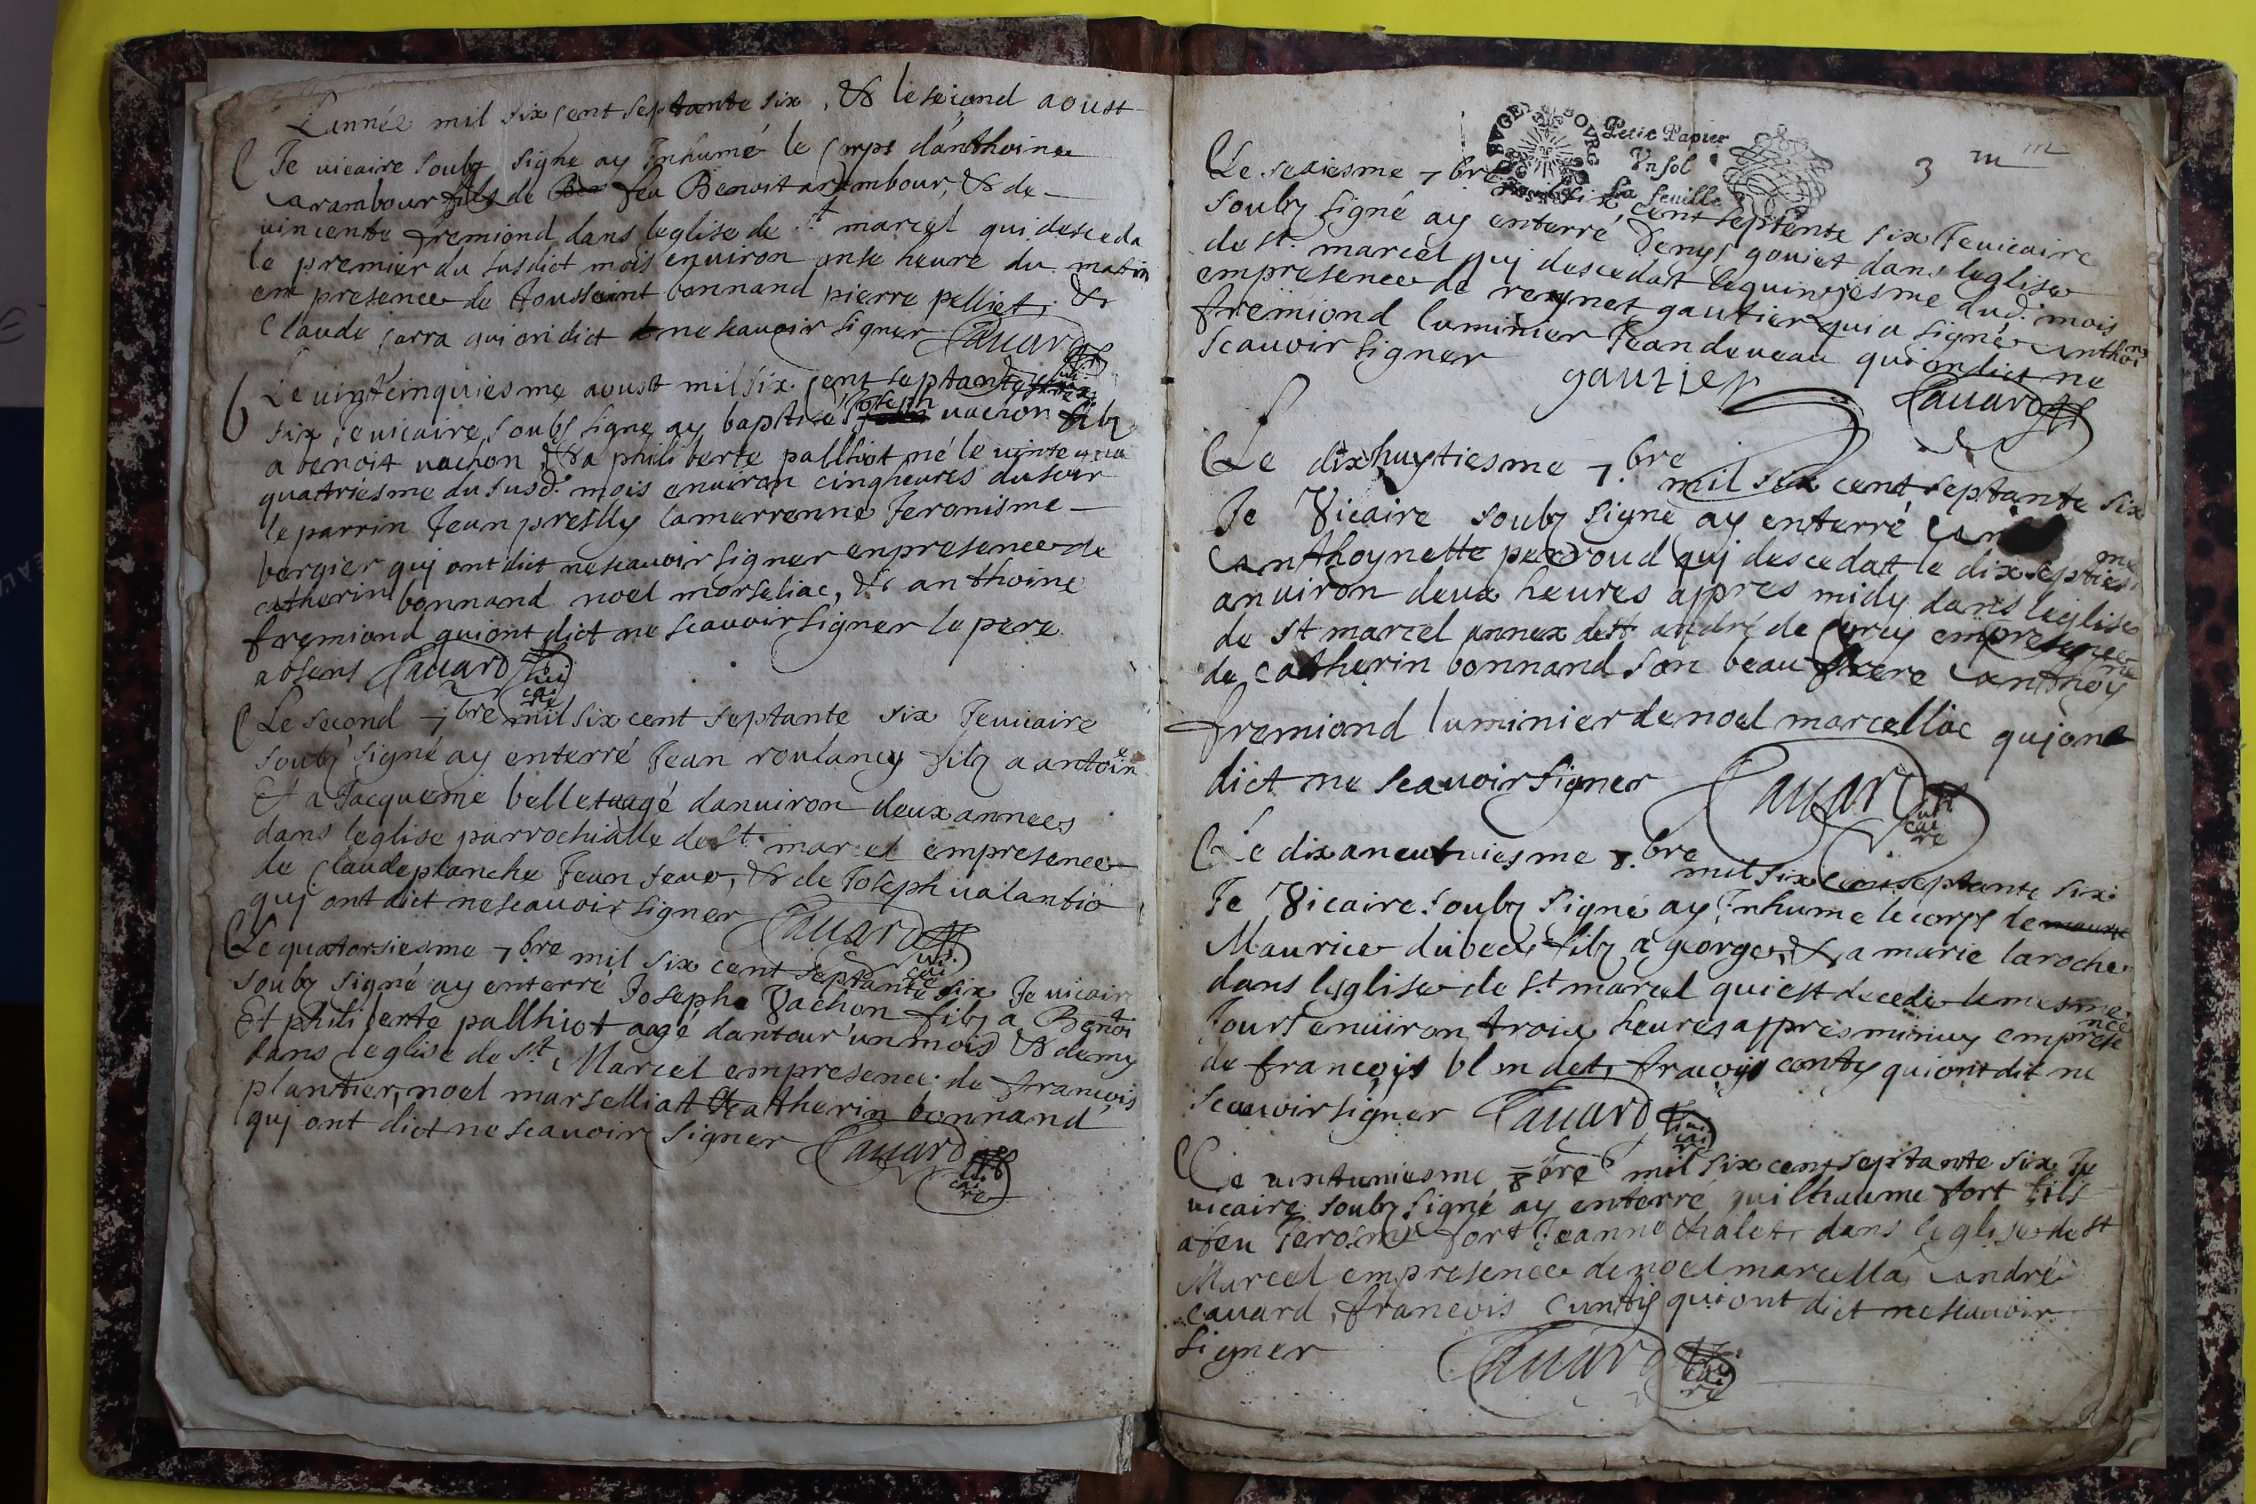 Lannée mil six cent septante six, & le second aoust
Je vicaire soubz signe ay Inhumé le corps danthoine
arambour filz de feu Benoit arambour, & de
vincente fremiond dans leglise de st marcel qui desceda
le premier du susdict mois environ onse heure du matin
em presence de toussaint bonnand pierre pelliet, &
Claude carra qui on dict ne scavoir signer Cavard
B Le vingtcinquiesme aoust mil six cent septante
six, Je vicaire soubz signe ay baptisé Joseph vachon filz
a benoit vachon & a philiberte palliot né le vinte
quatriesme du susd. mois environ cinq heures du soir
le parrin Jean presly la marrenne Jeronisme
bergier qui ont dict ne scavoir signer en presence de
catherin bonnand noel morseliac, & anthoine
fremiond qui ont dict ne scavoir signer le pere
absens Cavard vicaire
Le second 7bre mil six cent septante six Je vicaire
soubz signé ay enterré Jean roulancy filz a antoine
Et a Jacqueme belletu agé danviron deux annees
dans leglise parrochialle de St. marcel empresence
de Claude planche Jean seve, & de Joseph valantio
qui ont dict ne scavoir signer Cavard vicaire
Le quatorsiesme 7bre mil six cent septante six Je vicaire
soubz signé ay enterré Josephe Vachon filz a Benoit
Et philiberte pallhiot aagé dantour un mois & demy
dans leglise de St. Marcel empresence de francois
plantier, noel marselliat & catherin bonnand
qui ont dict ne scavoir signer Cavard vicaire
BVGEY BOVRG
Petit Papier
Vn sol
La feuille
3 m m
Le seaiesme 7bre mil six cent septente six Je vicaire
soubz signé ay enterré Denys goujet dans leglise
de st. marcel qui descedat le quinziesme dud. mois
empresence de reynet gautier qui a signé anthoine
fremiond luminier Jean deveau qui on dict ne
scavoir signer gautier Cavard
Le dixhuytiesme 7.bre mil six cent septante six
Je Vicaire soubz signé ay enterré
anthoynette perroud qui descedatt le dixseptiesme
anviron deux heures appres midy dans leglise
de st marcel annex de st. andré de Corcy empresence
de catherin bonnand son beau frere anthoyne
fremiond luminier de noel marcelliac qui one
dict ne scavoir signer Cavard vicaire
Le dixaneufviesme 8.bre mil six cent septante six
Je Vicaire soubz signé ay Inhume le corps de
Maurice dubec filz a george, & a marie laroche
dans leglise de St. marcel qui est decede le mesme
Jour environ trois heures appres minuy empresence
de francoys blondet, fracoys conty qui ont dit ne
scavoir signer Cavard vicaire
Le vintuniesme 8bre mil six cent septante six Je
vicaire soubz signé ay enterré guilhaume fort fils
a feu Jerosme fort Jeanne chalet dans leglise de st
Marcel empresence de noel marcella, andré
cavard, francois Cuntis qui ont dict ne scavoir
signer Cavard vicaire